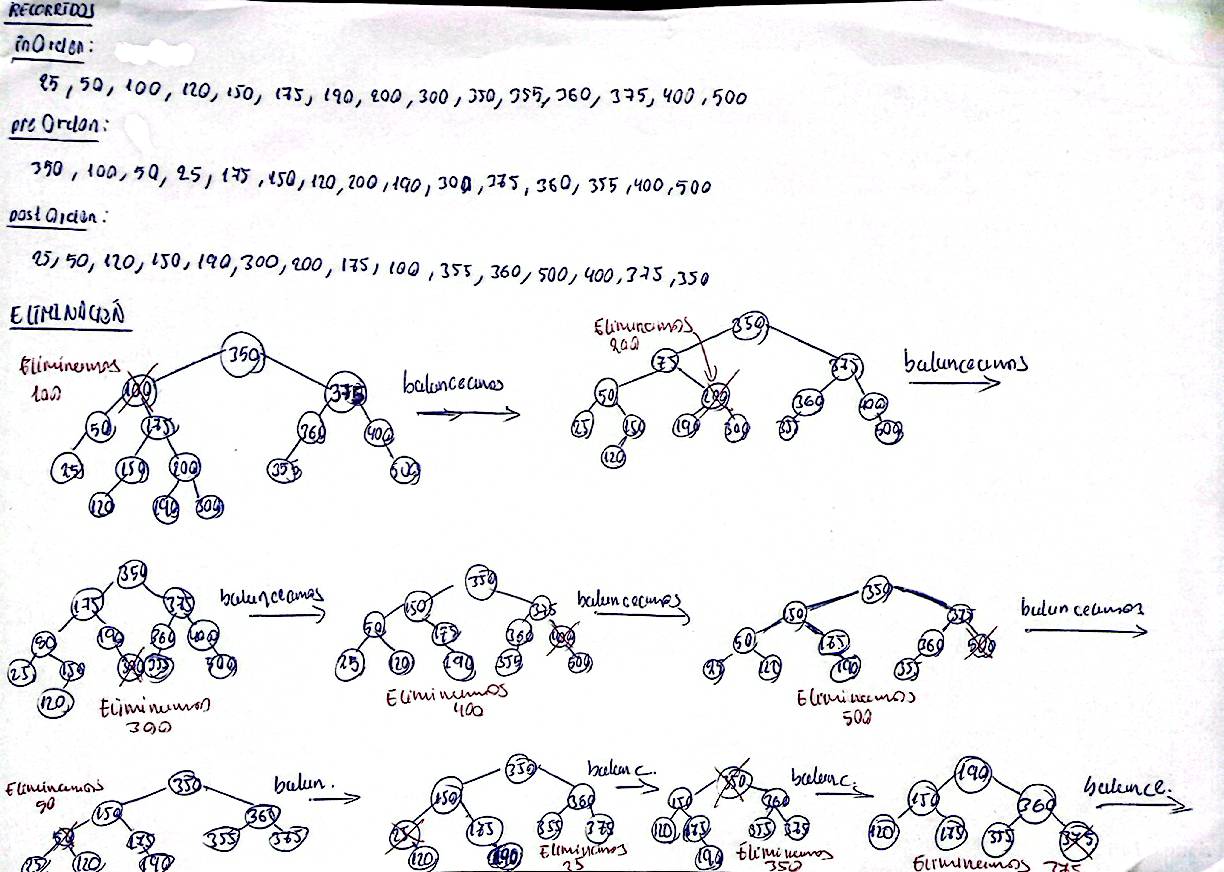 RECORRIDOS
inOrden:
25, 50, 100, 120, 150, 175, 190, 200, 300, 350, 355, 360, 375, 400, 500
preOrden:
350, 100, 50, 25, 175, 150, 120, 200, 190, 300, 375, 360, 355, 400, 500
postOrden:
25, 50, 120, 150, 190, 300, 200, 175, 100, 355, 360, 500, 400, 375, 350
ELIMINACIÓN
Eliminamos
100
350
100 375
50 175 360 400
25 150 200 355 500
120 190 300
balanceamos
Eliminamos
200
350
75 375
50 200 360 400
25 150 190 300 355 500
120
balanceamos
350
175 375
50 190 360 400
25 150 300 355 500
120
Eliminamos
300
balanceamos
350
150 375
50 175 360 400
25 120 190 355 500
Eliminamos
400
balanceamos
350
50 375
50 175 360 500
25 120 190 355
Eliminamos
500
balanceamos
Eliminamos
50
350
150 360
50 175 355 375
25 120 190
balan.
350
150 360
25 175 355 375
120 190
Eliminamos
25
balanc.
350
150 360
120 175 355 375
190
Eliminamos
350
balanc.
190
150 360
120 175 355 375
Eliminamos 375
balance.